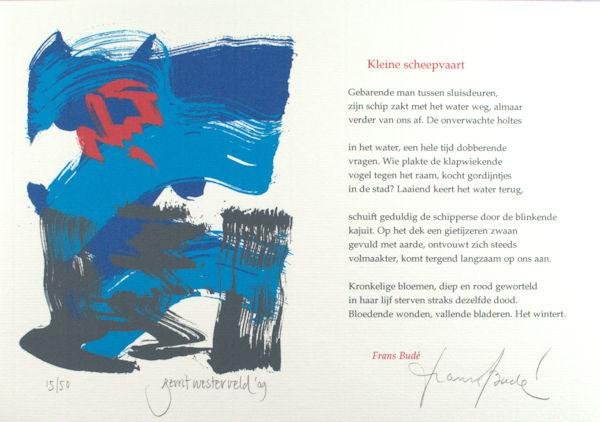 Kleine scheepvaart
Gebarende man tussen sluisdeuren,
zijn schip zakt met het water weg, almaar
verder van ons af. De onverwachte holtes
in het water, een hele tijd dobberende
vragen. Wie plakte de klapwiekende
vogel tegen het raam, kocht gordijntjes
in de stad? Laaiend keert het water terug,
schuift geduldig de schipperse door de blinkende
kajuit. Op het dek een gietijzeren zwaan
gevuld met aarde, ontvouwt zich steeds
volmaakter, komt tergend langzaam op ons aan.
Kronkelige bloemen, diep en rood geworteld
in haar lijf sterven straks dezelfde dood.
Bloedende wonden, vallende bladeren. Het wintert.
Frans Budé
Frans Budé
15/50
gerrit westerveld '09